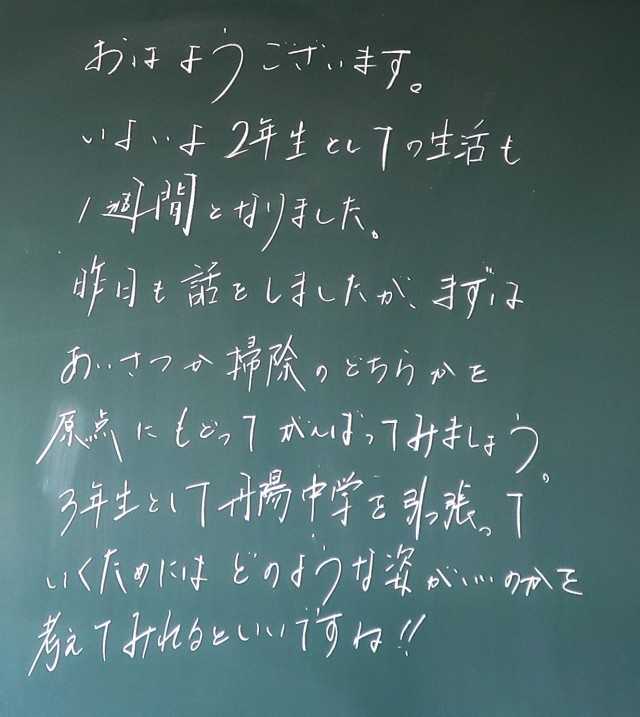 おはようございます。
いよいよ2年生としての生活も
1週間となりました。
昨日も話をしましたが、まずは
あいさつか掃除のどちらかを
原点にもどってがんばってみましょう。
3年生として丹陽中学を引っ張って
いくためにはどのような姿がいいのかを
考えてみれるといいですね!!